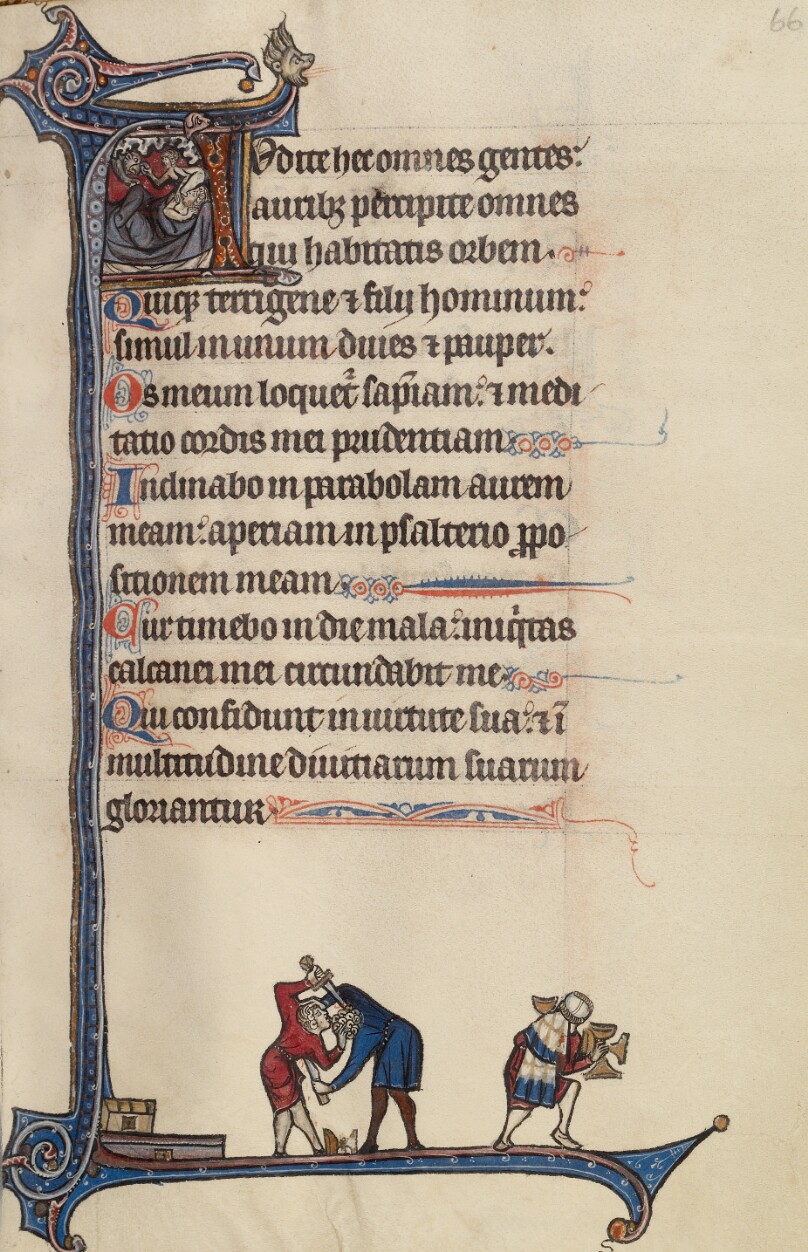 66
Audite hec omnes gentes:
aurib percipite omnes
qui habitatis orbem.
Quiq terrigene ⁊ filij hominum:
simul in unum diues ⁊ pauper.
Os meum loquet sapiam: ⁊ medi
tatio cordis mei prudentiam
Inclinabo in parabolam aurem
meam: aperiam in psalterio ꝓpo
sitionem meam
Cur timebo in die mala: iniqitas
calcanei mei circundabit me
Qui confidunt in uirtute sua: ⁊ ĩ
multitudine diuitiarum suarum
gloriantur